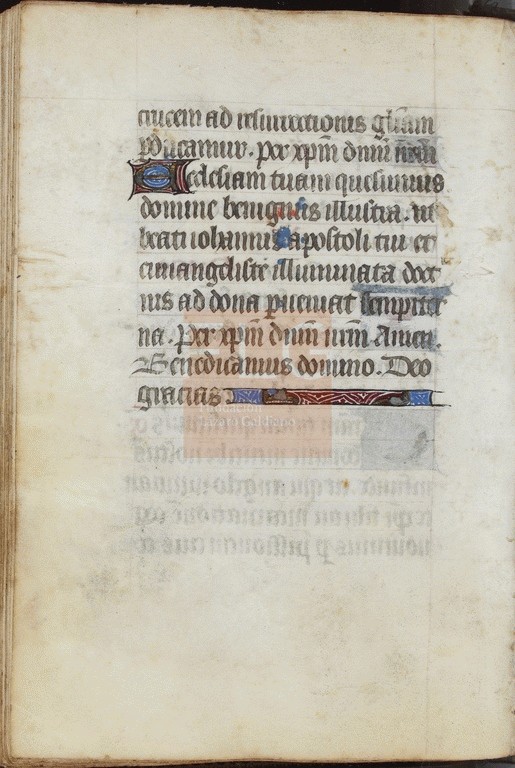 crucem ad resurrectionis gl̃iam
ꝑducamur. Per xp̃m dñm nr̃m
Ecclesiam tuam quesumus
domine benignus illustra. ut
beati iohannis apostoli tui et
euuangeliste illuminata doct
nis ad dona ꝑueniat sempiter
na. Per xp̃m dñm nr̃m Amen.
Benedicamus domino. Deo
gracias